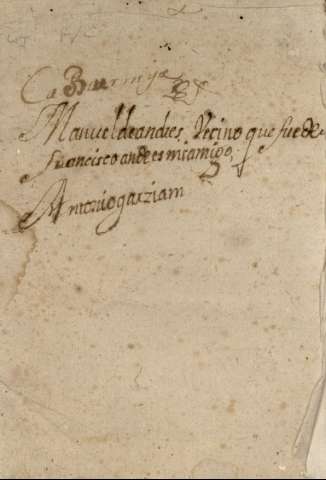 Manuel de andres Vecino que fue de
francisco andres mi amigo,
Antonio garziam